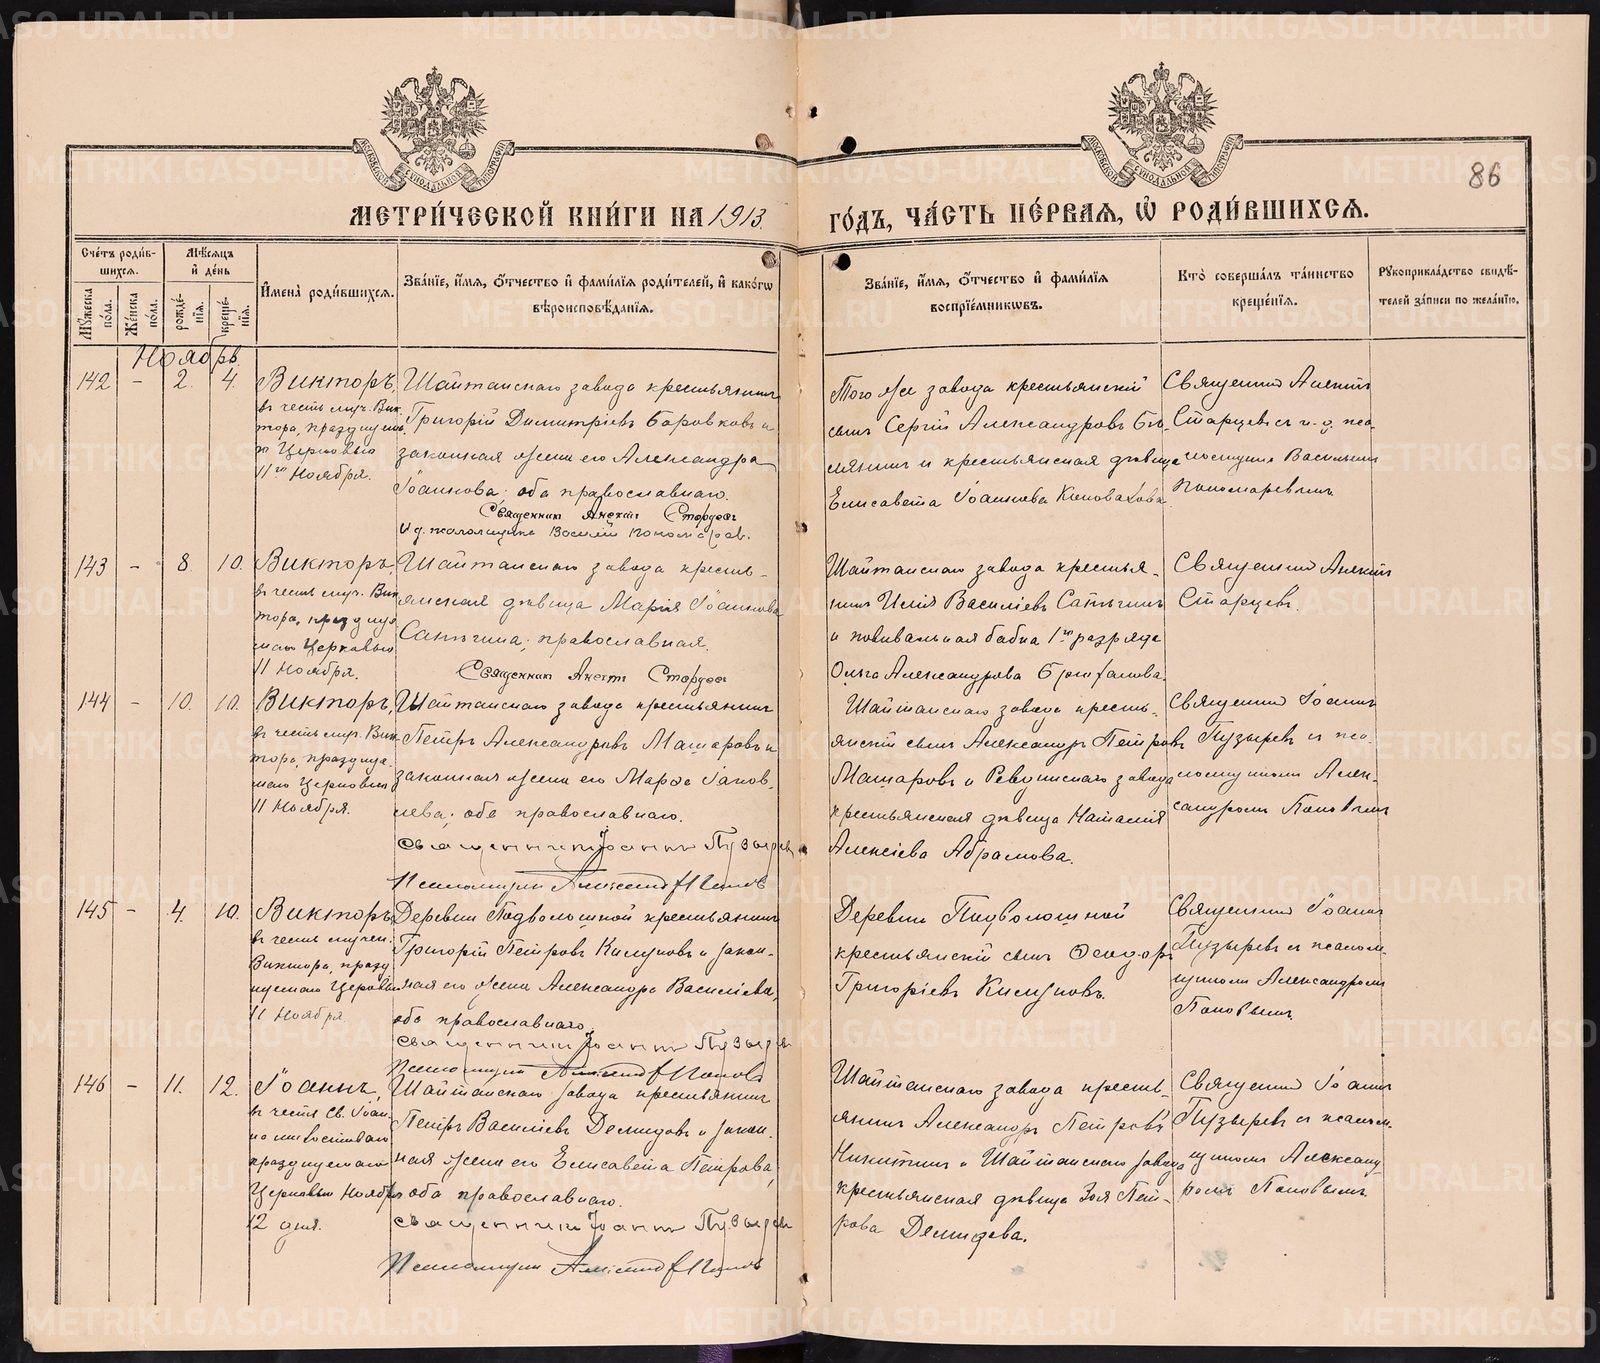 МЕТРИ́ЧЕСКОЙ КНИ́ГИ НА 1913.
ГО́ДЪ, ЧА́СТЬ ПЕ́РВАЯ, Ѡ҆ РОДИ́ВШИХСЯ.
86
Сче́тъ роди́в-
шихся.
Мѣсяцъ
и҆ де́нь
И҆мена̀ роди́вшихся.
Зва́нїе, и҆́мя, ѻ҆́тчество и҆ фами́лїя роди́телей, и҆ како́гѡ
вѣроисповѣ́данїя.
Зва́нїе, и҆́мя, ѻ҆́тчество и҆ фами́лїя
воспрїе́мникѡвъ.
Кто̀ соверша́лъ та́инство
креще́нїя.
Рꙋкоприкла́дство свидѣ́-
телей за́писи по жела́нїю.
Мꙋ́жеска
по́ла.
Же́нска
по́ла.
рожде́-
нїя.
креще́-
нїя.
Ноябрь
142 – 2. 4.
Викторъ,
въ честь муч. Вик-
тора, празднуемаго
Церковью
11го Ноября.
Шайтанскаго завода крестьянинъ
Григорій Димитріевъ Боровковъ и
законная жена его Александра
Іоаннова; оба православнаго.
Священник Старцев
И. д. псаломщика Василій Пономарев.
Того же завода крестьянскій
сынъ Сергій Александровъ
и крестьянская дѣвица
Елисавета Іоаннова
Священникъ
Старцевъ с и. д. пса-
ломщика Василіемъ
Пономаревымъ
143 – 8 10.
Викторъ,
въ честь муч. Вик
тора, праздну
маго Церковью
11 Ноября.
Шайтанскаго завода кресть-
янская дѣвица Марія Іоаннова
православная.
Священник Старцев
Шайтанскаго завода крестья-
нинъ Илія Василіевъ
и повивальная бабка 1го разряда
Ольга Александрова
Священникъ
Старцевъ.
144 – 10. 10.
Викторъ,
въ честь муч. Вик
тора, праздну
маго Церковью
11 Ноября.
Шайтанскаго завода крестьянинъ
Петръ Александровъ Машаровъ и
законная жена его
оба православнаго.
священник Іоанн Пузырев
Псаломщик Александр Попов
Шайтанскаго завода кресть-
янскій сынъ Александръ Петровъ
Машаровъ и Ревдинскаго завода
крестьянская дѣвица Наталія
Алексіева Абрамова.
Священникъ Іоаннъ
Пузыревъ съ пса-
ломщикомъ Алек-
сандромъ Поповымъ
145 – 4. 10.
Викторъ
въ честь мучен.
Виктора, празд
нуемаго Церковью
11 Ноября.
Деревни Подволошной крестьянинъ
Григорій Петровъ и закон-
ная его жена Александра Василіева,
оба православнаго.
священник Іоанн Пузырев
Псаломщик Александр Попов
Деревни Подволошной
крестьянскій сынъ Ѳеодоръ
Григоріевъ
Священникъ Іоаннъ
Пузыревъ съ псалом-
щикомъ Александромъ
Поповымъ.
146 – 11. 12.
Іоаннъ,
въ честь Св. Іоан-
на милостиваго
празднуемаго
Церковью Ноября
12 дня.
Шайтанскаго завода крестьянинъ
Петръ Василіевъ Демидовъ и закон-
ная жена его Елисавета Петрова,
оба православнаго.
священник Іоанн Пузырев
Псаломщик Александр Попов
Шайтанскаго завода кресть-
янинъ Александръ Петровъ
Никитинъ и Шайтанскаго завода
крестьянская дѣвица Зоя Пет-
рова Демидова.
Священникъ Іоаннъ
Пузыревъ съ псалом-
щикомъ Александ-
ромъ Поповымъ.
METRIKI.GASO-URAL.RU